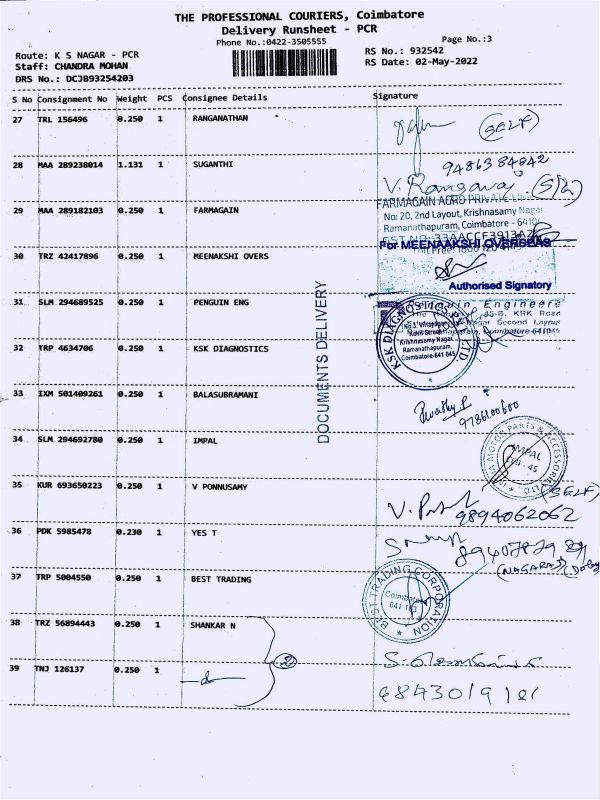 THE PROFESSIONAL COURIERS, Coimbatore
Delivery Runsheet - PCR
Phone No.:0422-3505555
Page No.:3
Route: K S NAGAR - PCR
RS No.: 932542
Staff: CHANDRA MOHAN
RS Date: 02-May-2022
DRS No.: DCJB93254203
S No Consignment No Weight PCS Consignee Details Signature
27 TRL 156496 0.250 1 RANGANATHAN
(SELF)
28 MAA 289238014 1.131 1 SUGANTHI
9486384842
V.
29 MAA 289182103 0.250 1 FARMAGAIN
FARMAGAIN AGRO PRIVATE
No: 20, 2nd Layout, Krishnasamy Nagar
Ramanathapuram, Coimbatore - 
30 TRZ 42417896 0.250 1 MEENAKSHI OVERS
For MEENAAKSHI OVERSEAS
Authorised Signatory
31 SLM 294689525 0.250 1 PENGUIN ENG
Engineers
KRK Road
Second Layout
32 TRP 4634706 0.250 1 KSK DIAGNOSTICS
KSK DIAGNOSTIC
Krishnasamy Nagar,
Ramanathapuram,
Coimbatore-641 045
DOCUMENTS DELIVERY
33 IXM 501409261 0.250 1 BALASUBRAMANI
9786100600
34 SLM 294692780 0.250 1 IMPAL
MOTOR PARTS & ACCESSORIES LTD.
IMPAL
35 KUR 693650223 0.250 1 V PONNUSAMY
(SELF)
9894062062
36 PDK 5985478 0.230 1 YES T
37 TRP 5004550 0.250 1 BEST TRADING
BEST TRADING CORPORATION
Coimbatore
38 TRZ 56894443 0.250 1 SHANKAR N
2
39 TNJ 126137 0.250 1